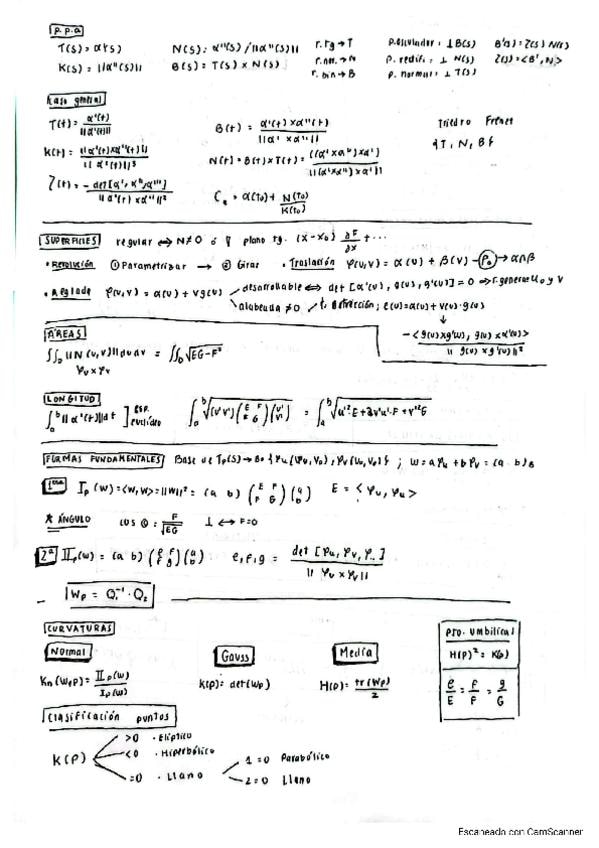 p.p.a
T(s) = α'(s) N(s): α''(s) / ||α''(s)|| r. tg → T p. osculador: ⊥ B(s) B'(s) = τ(s) N(s)
K(s) = ||α''(s)|| B(s) = T(s) x N(s) r. nor. → N p. rectifi.: ⊥ N(s) τ(s) = <B', N>
r. bin → B p. normal: ⊥ T(s)
Kaso general
T(t) = α'(t) / ||α'(t)|| B(t) = α'(t) x α''(t) / ||α' x α''|| Triedro Frenet
K(t) = ||α'(t) x α''(t)|| / ||α'(t)||³ N(t) = B(t) x T(t) = ((α' x α'') x α') / ||(α' x α'') x α'|| {T, N, B}
τ(t) = - det[α', α'', α'''] / ||α'(t) x α''||² C = α(t₀) + N(t₀) / K(t₀)
SUPERFICIES regular ⇔ N≠0 plano tg. (x-x₀) ∂F/∂x + ...
• Revolución ① Parametrizar → ② Girar • Traslación φ(u,v) = α(u) + β(v) - P₀ → α∩β
• Reglada φ(u,v) = α(u) + v g(u) desarrollable ⇔ det [α'(u), g(u), g'(u)] = 0
alabeada ≠ 0
ÁREAS
∫∫_D ||N(u,v)|| du dv = ∫∫_D √EG-F²
φu x φv
LONGITUD
∫_a^b ||α'(t)|| dt ] esp. euclídeo ∫_a^b √(u' v') (E F / F G) (u' / v') = ∫_a^b √u'²E + 2v'u'·F + v'²G
FORMAS FUNDAMENTALES Base de Tp(S) → B = {φu(u₀,v₀), φv(u₀,v₀)} ; w = aφu + bφv = (a b)_B
1era I_p(w) = <w,w> = ||w||² = (a b) (E F / F G) (a / b) E = <φu, φu>
* ÁNGULO cos θ = F / √EG ⊥ ⟷ F=0
2ª II_p(w) = (a b) (e f / f g) (a / b) e, f, g = det [φu, φv, φ..] / ||φu x φv||
Wp = Q₁⁻¹ · Q₂
CURVATURAS
Normal Gauss Media pto. umbilical
Kn(w,p) = II_p(w) / I_p(w) K(p) = det(Wp) H(p) = tr(Wp) / 2 H(p)² = K(p)
e/E = f/F = g/G
Clasificación puntos
K(p) >0 · Elíptico
<0 · Hiperbólico
=0 · Llano 1=0 Parabólico
2=0 Llano
Escaneado con CamScanner